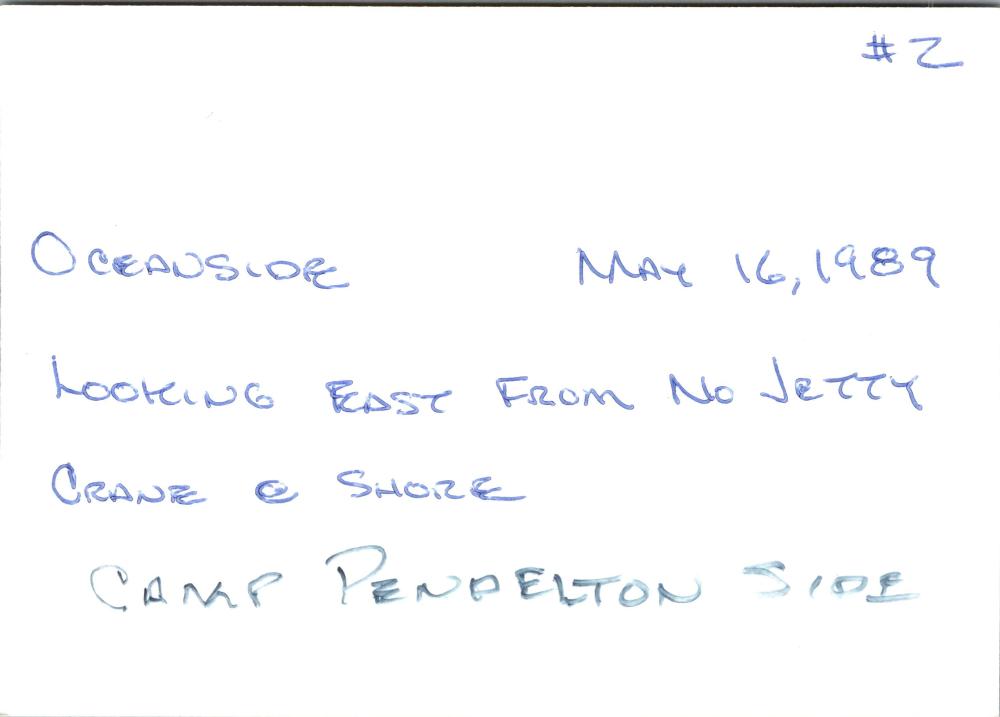 #2
OCEANSIDE MAY 16, 1989
LOOKING EAST FROM NO JETTY
CRANE @ SHORE
CAMP PENDELTON SIDE